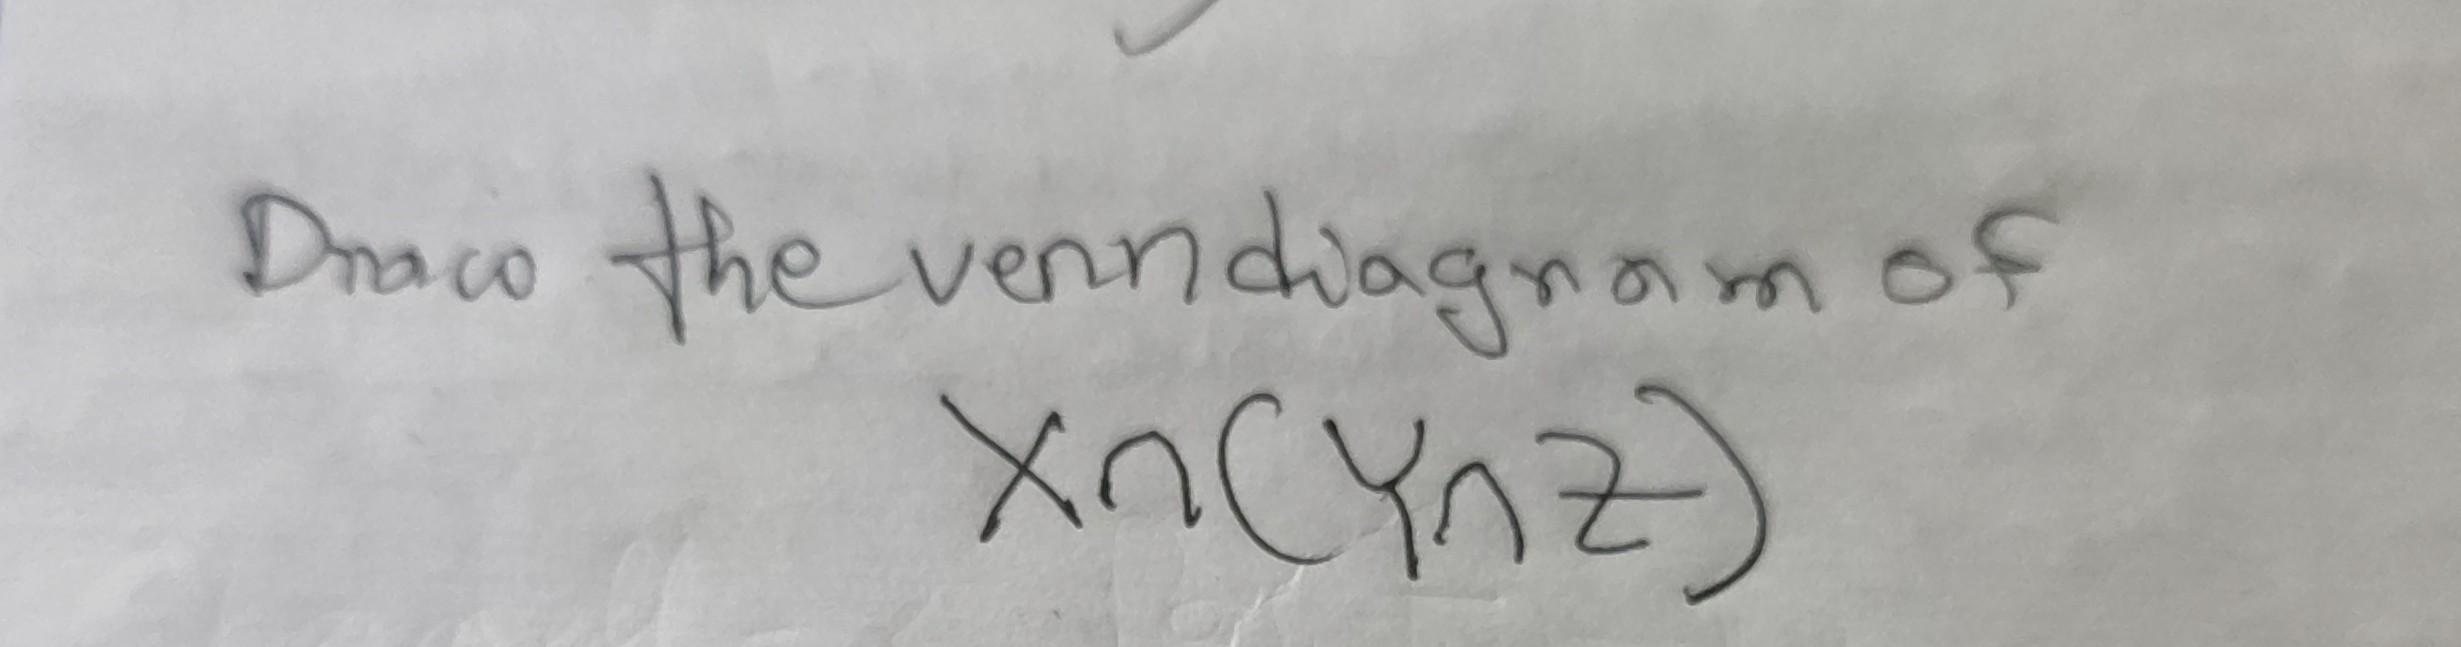 Draw the venn diagram of
X∩(Y∩Z)